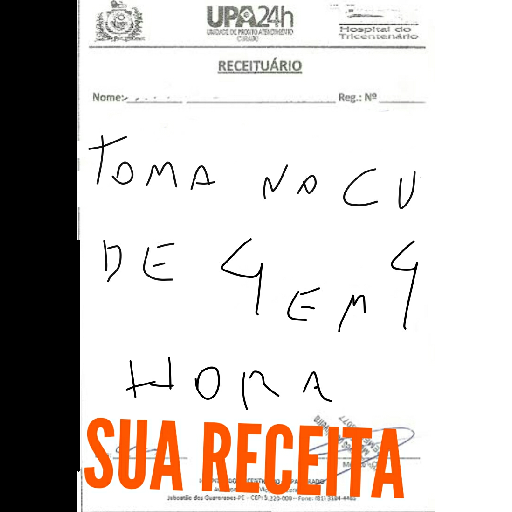 UPA24h
UNIDADE DE PRONTO ATENDIMENTO
CURADO
Hospital do
Tricentenário
RECEITUÁRIO
Nome:
Reg.: Nº
TOMA NO CU
DE 4 EM 4
HORA
SUA RECEITA
Jaboatão dos Guararapes-PE - CEP: